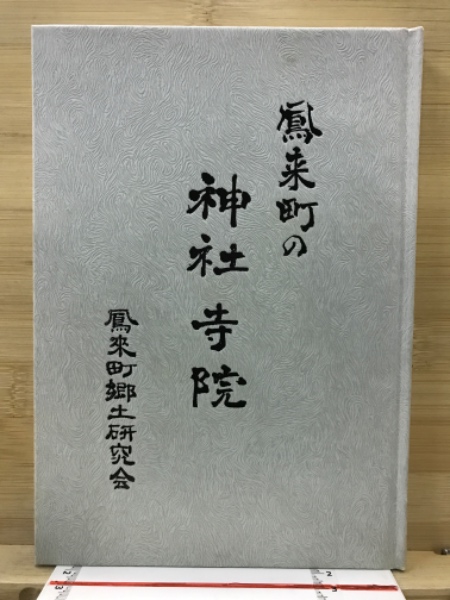 鳳来町の
神社寺院
鳳來町郷土研究会